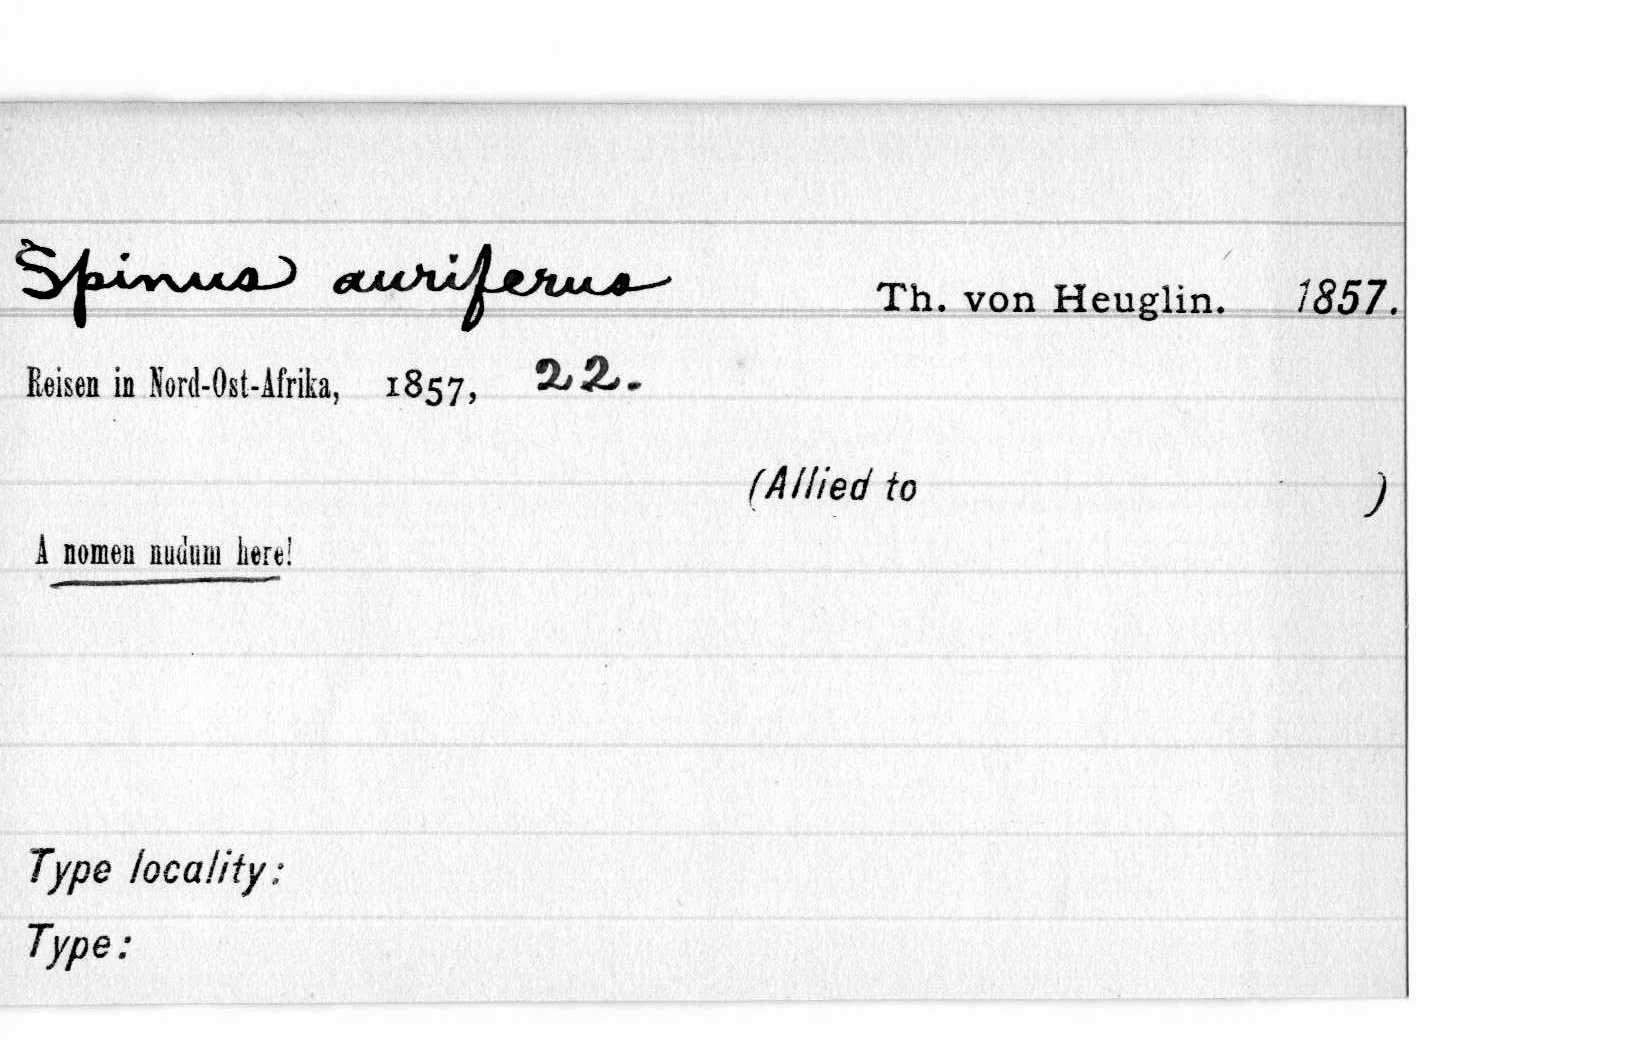 Spinus auriferus Th. von Heuglin. 1857.
Reisen in Nord-Ost-Afrika, 1857, 22.
(Allied to )
A nomen nudum here!
Type locality:
Type: